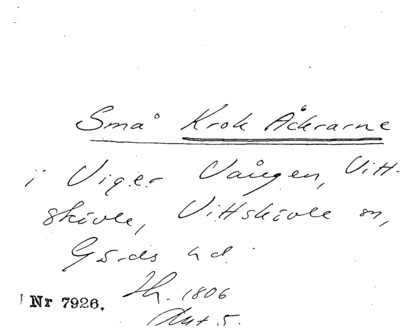 Små Krok Åckrarne
i Viger Vången, Vitt-
skövle, Vittskövle sn,
Gärds hd.
Nr 7926. Zh. 1806
Akt 5.